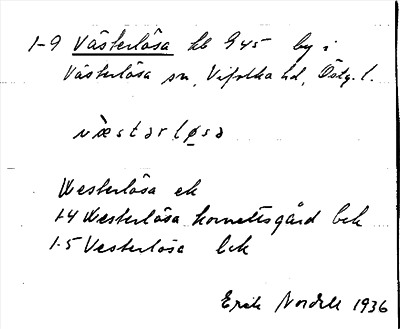 1-9 Västerlösa kb 945 by i
Västerlösa sn, Vifolka hd, Östg. l.
væstərløsa
Westerlösa ek
1-4 Westerlösa kornettsgård bek
1-5 Vesterlösa bek
Erik 1936